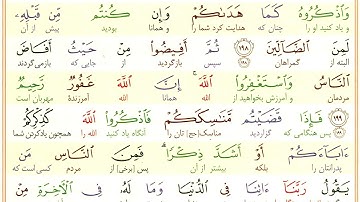 وَاذْكُرُوهُ كَمَا هَدَىٰكُمْ وَإِن كُنتُم مِّن قَبْلِهِ
و یاد کنید او را چنان که هدایت کرد شما را و همانا بودید پیش از آن
لَمِنَ الضَّالِّينَ ١٩٨ ثُمَّ أَفِيضُوا مِنْ حَيْثُ أَفَاضَ
البته از گمراهان ١٩٨ سپس بازگردید از جایی که بازمی‌گردند
النَّاسُ وَاسْتَغْفِرُوا اللَّهَ إِنَّ اللَّهَ غَفُورٌ رَّحِيمٌ
مردمان و آمرزش بخواهید از الله همانا الله آمرزندهٔ مهربان است
١٩٩ فَإِذَا قَضَيْتُم مَّنَاسِكَكُمْ فَاذْكُرُوا اللَّهَ كَذِكْرِكُمْ
١٩٩ پس هنگامی که گزاردید مناسک(حج) تان را آنگاه یاد کنید الله را همچون یادکردن شما
ءَابَاءَكُمْ أَوْ أَشَدَّ ذِكْرًا فَمِنَ النَّاسِ مَن
پدرانتان را بلکه بیشتر از آن پس (برخی) از مردم کسی است که
يَقُولُ رَبَّنَا ءَاتِنَا فِي الدُّنْيَا وَمَا لَهُ فِي الْآخِرَةِ مِنْ